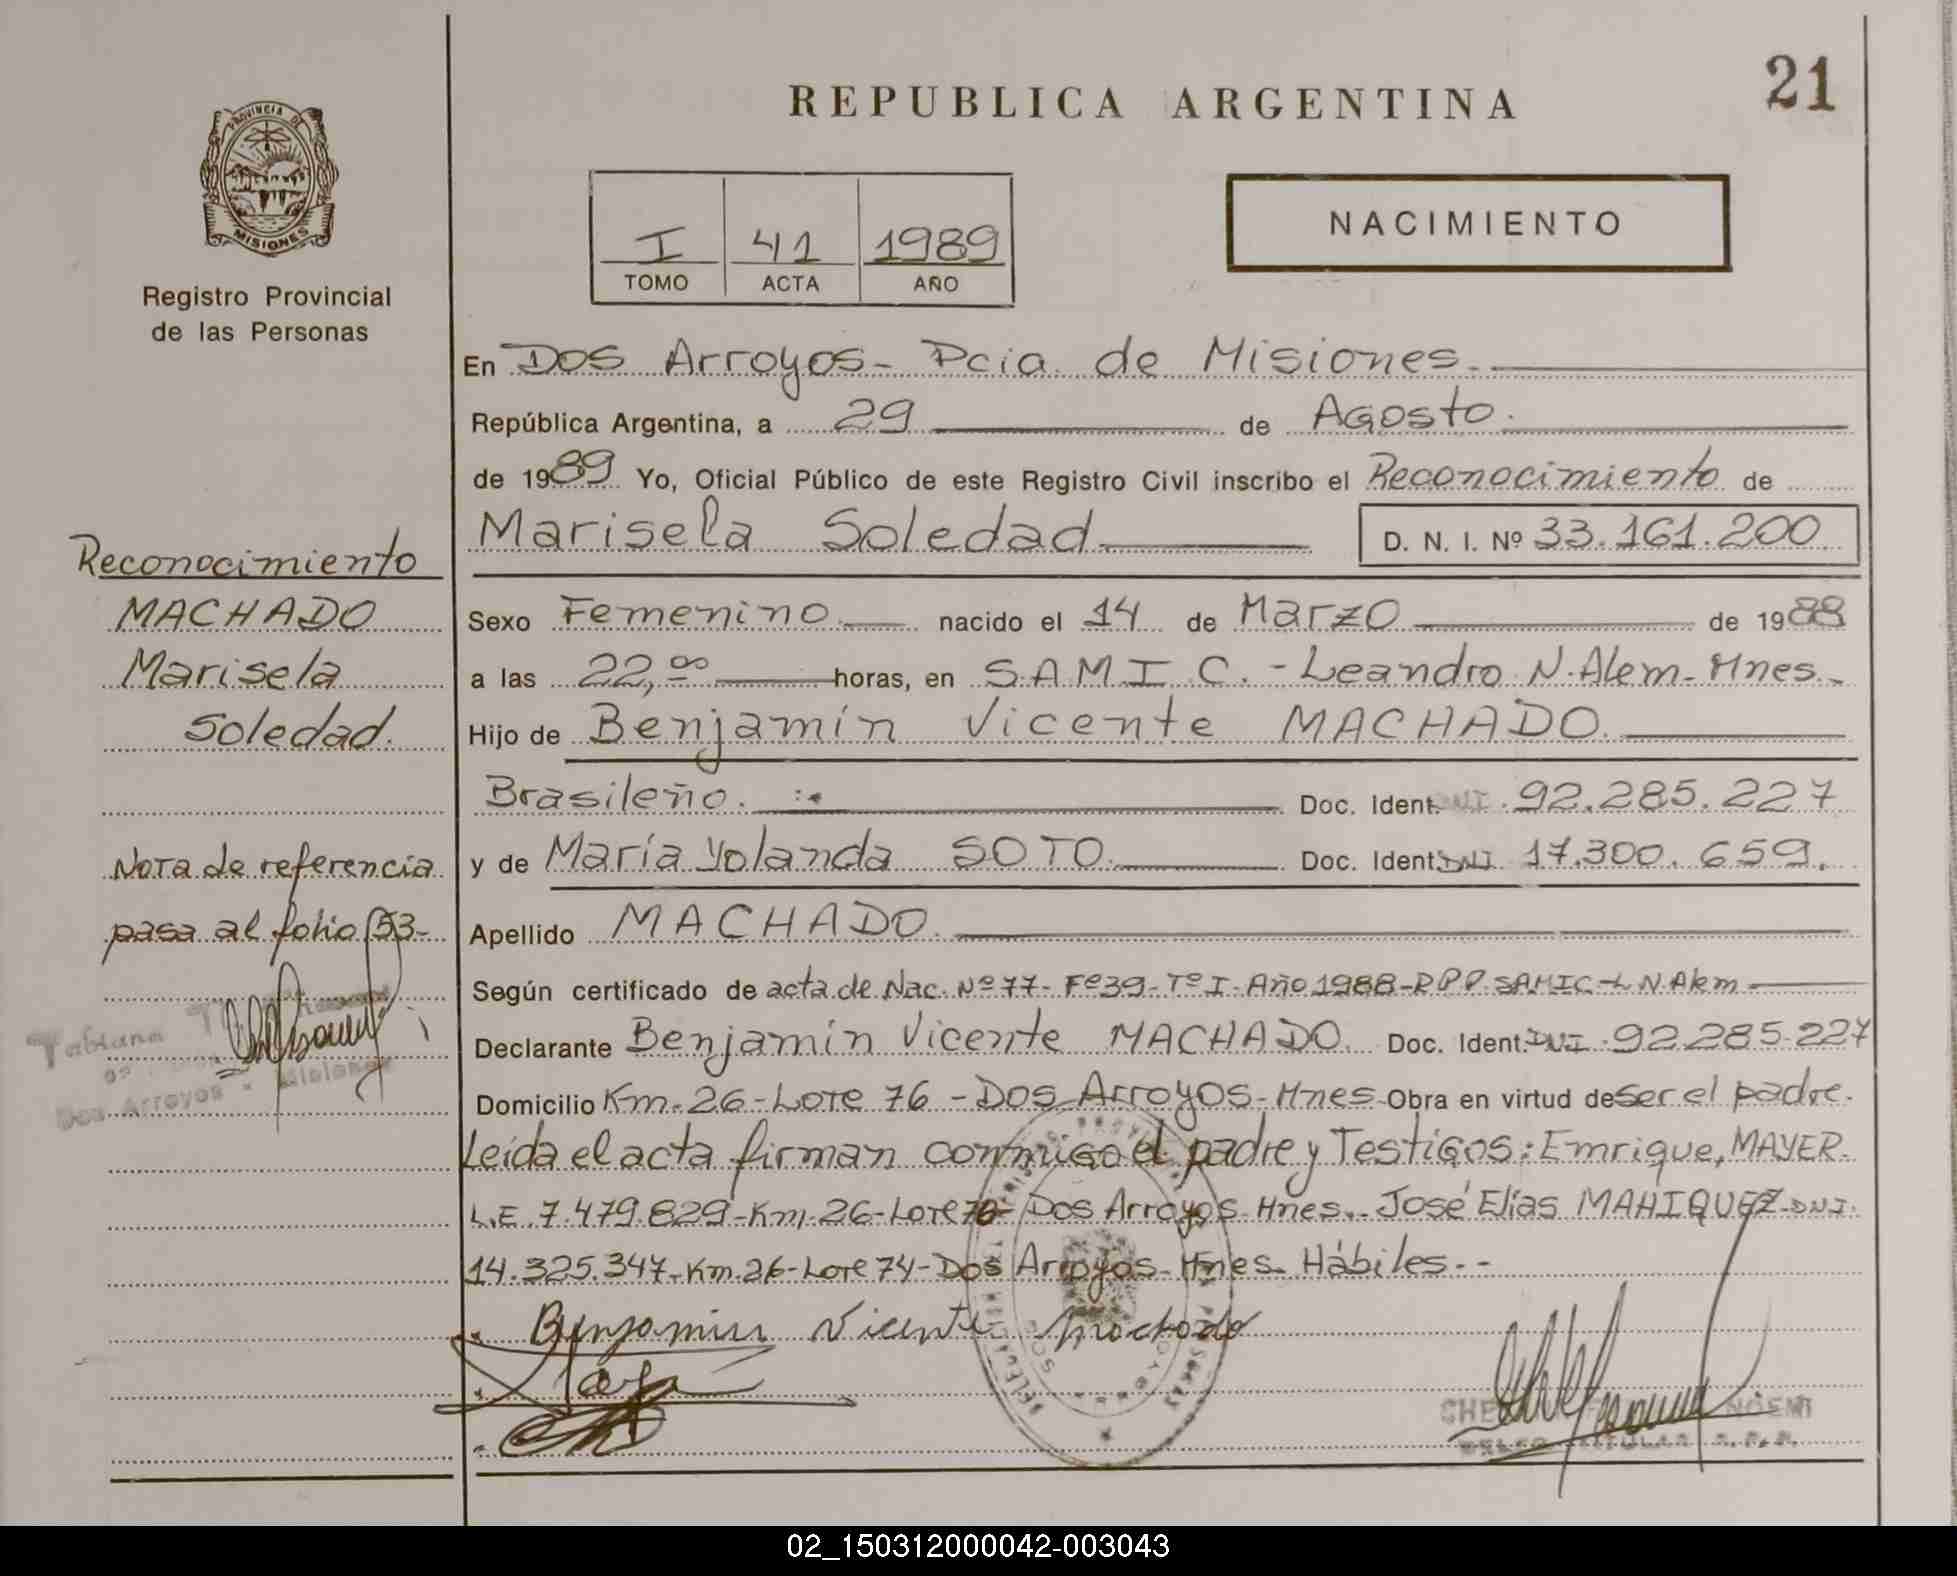 21
REPUBLICA ARGENTINA
PROVINCIA DE
MISIONES
Registro Provincial
de las Personas
I 41 1989
TOMO ACTA AÑO
NACIMIENTO
En Dos Arroyos- Pcia. de Misiones.
República Argentina, a 29 de Agosto.
de 1989 Yo, Oficial Público de este Registro Civil inscribo el Reconocimiento de
Marisela Soledad D. N. I. Nº 33.161.200
Sexo Femenino nacido el 14 de Marzo de 1988
a las 22,ºº horas, en S.A.M.I.C. - Leandro N. Alem- Mnes.-
Hijo de Benjamín Vicente MACHADO.
Brasileño. Doc. Ident. DNI. 92.285.227
y de María Yolanda SOTO. Doc. Ident. DNI 17.300.659.
Apellido MACHADO.
Según certificado de acta de Nac. Nº 77- Fº 39- Tº I- Año 1988- RPP. SAMIC- L N. Alem
Declarante Benjamín Vicente MACHADO. Doc. Ident. DNI. 92.285.227
Domicilio Km. 26- Lote 76 - Dos Arroyos- Mnes Obra en virtud de ser el padre.
Leída el acta firman conmigo el padre y Testigos: Emrique, MAYER-
L.E. 7.479.829- Km. 26- Lote 76- Dos Arroyos- Mnes.. José Elías MAHIQUEZ- DNI.
14.325.347- Km. 26- Lote 74- Dos Arroyos- Mnes. Hábiles.--
Benjamin Vicente Machado
NOEMI
TITULAR R.P.P.
Reconocimiento
MACHADO
Marisela
Soledad.
Nota de referencia
pasa al folio 53-
Fabiana
Dos Arroyos - Misiones
02_150312000042-003043